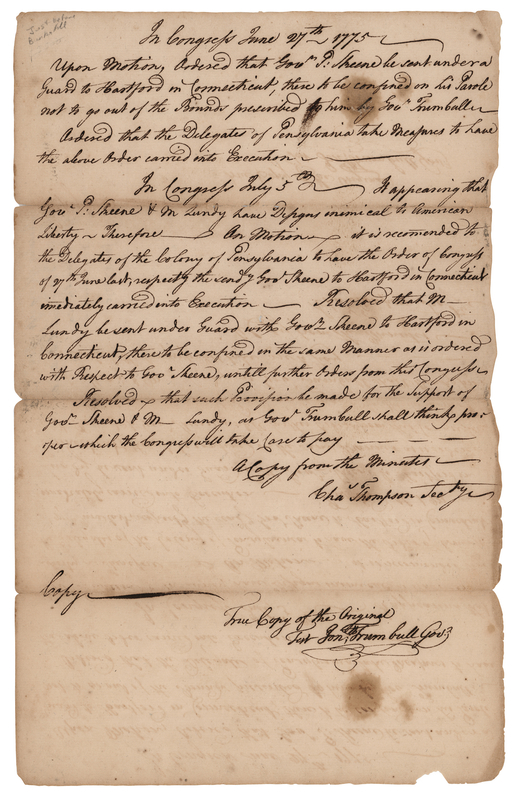 In Congress June 27th 1775
Upon Motion, Ordered that Govr P: Skeene be sent under a
Guard to Hartford in Connecticut, there to be confined on his Parole
not to go out of the Bounds prescribed to him by Govr Trumbull
Ordered that the Delegates of Pensylvania take Measures to have
the above Order carried into Execution
In Congress July 5th It appearing that
Govr P: Skeene & M Lundy have Designs inemical to American
Liberty Therefore On Motion it is recomended to
the Delegates of the Colony of Pensylvania to have the Order of Congress
of 27th June last, respectg the sendg Govr Skeene to Hartford in Connecticut
imediately carried into Execution Resolved that M
Lundy be sent under Guard with Govr Skeene to Hartford in
Connecticut, there to be confined in the same Manner as is ordered
with Respect to Govr Skeene, untill further Orders from this Congress
Resolved that such Provision be made for the Support of
Govr Skeene & M Lundy, as Govr Trumbull shall think pro-
per which the Congress will take Care to pay
A Copy from the Minutes
Chas Thompson Secty
Copy
True Copy of the Original
Test Jonth Trumbull Govr